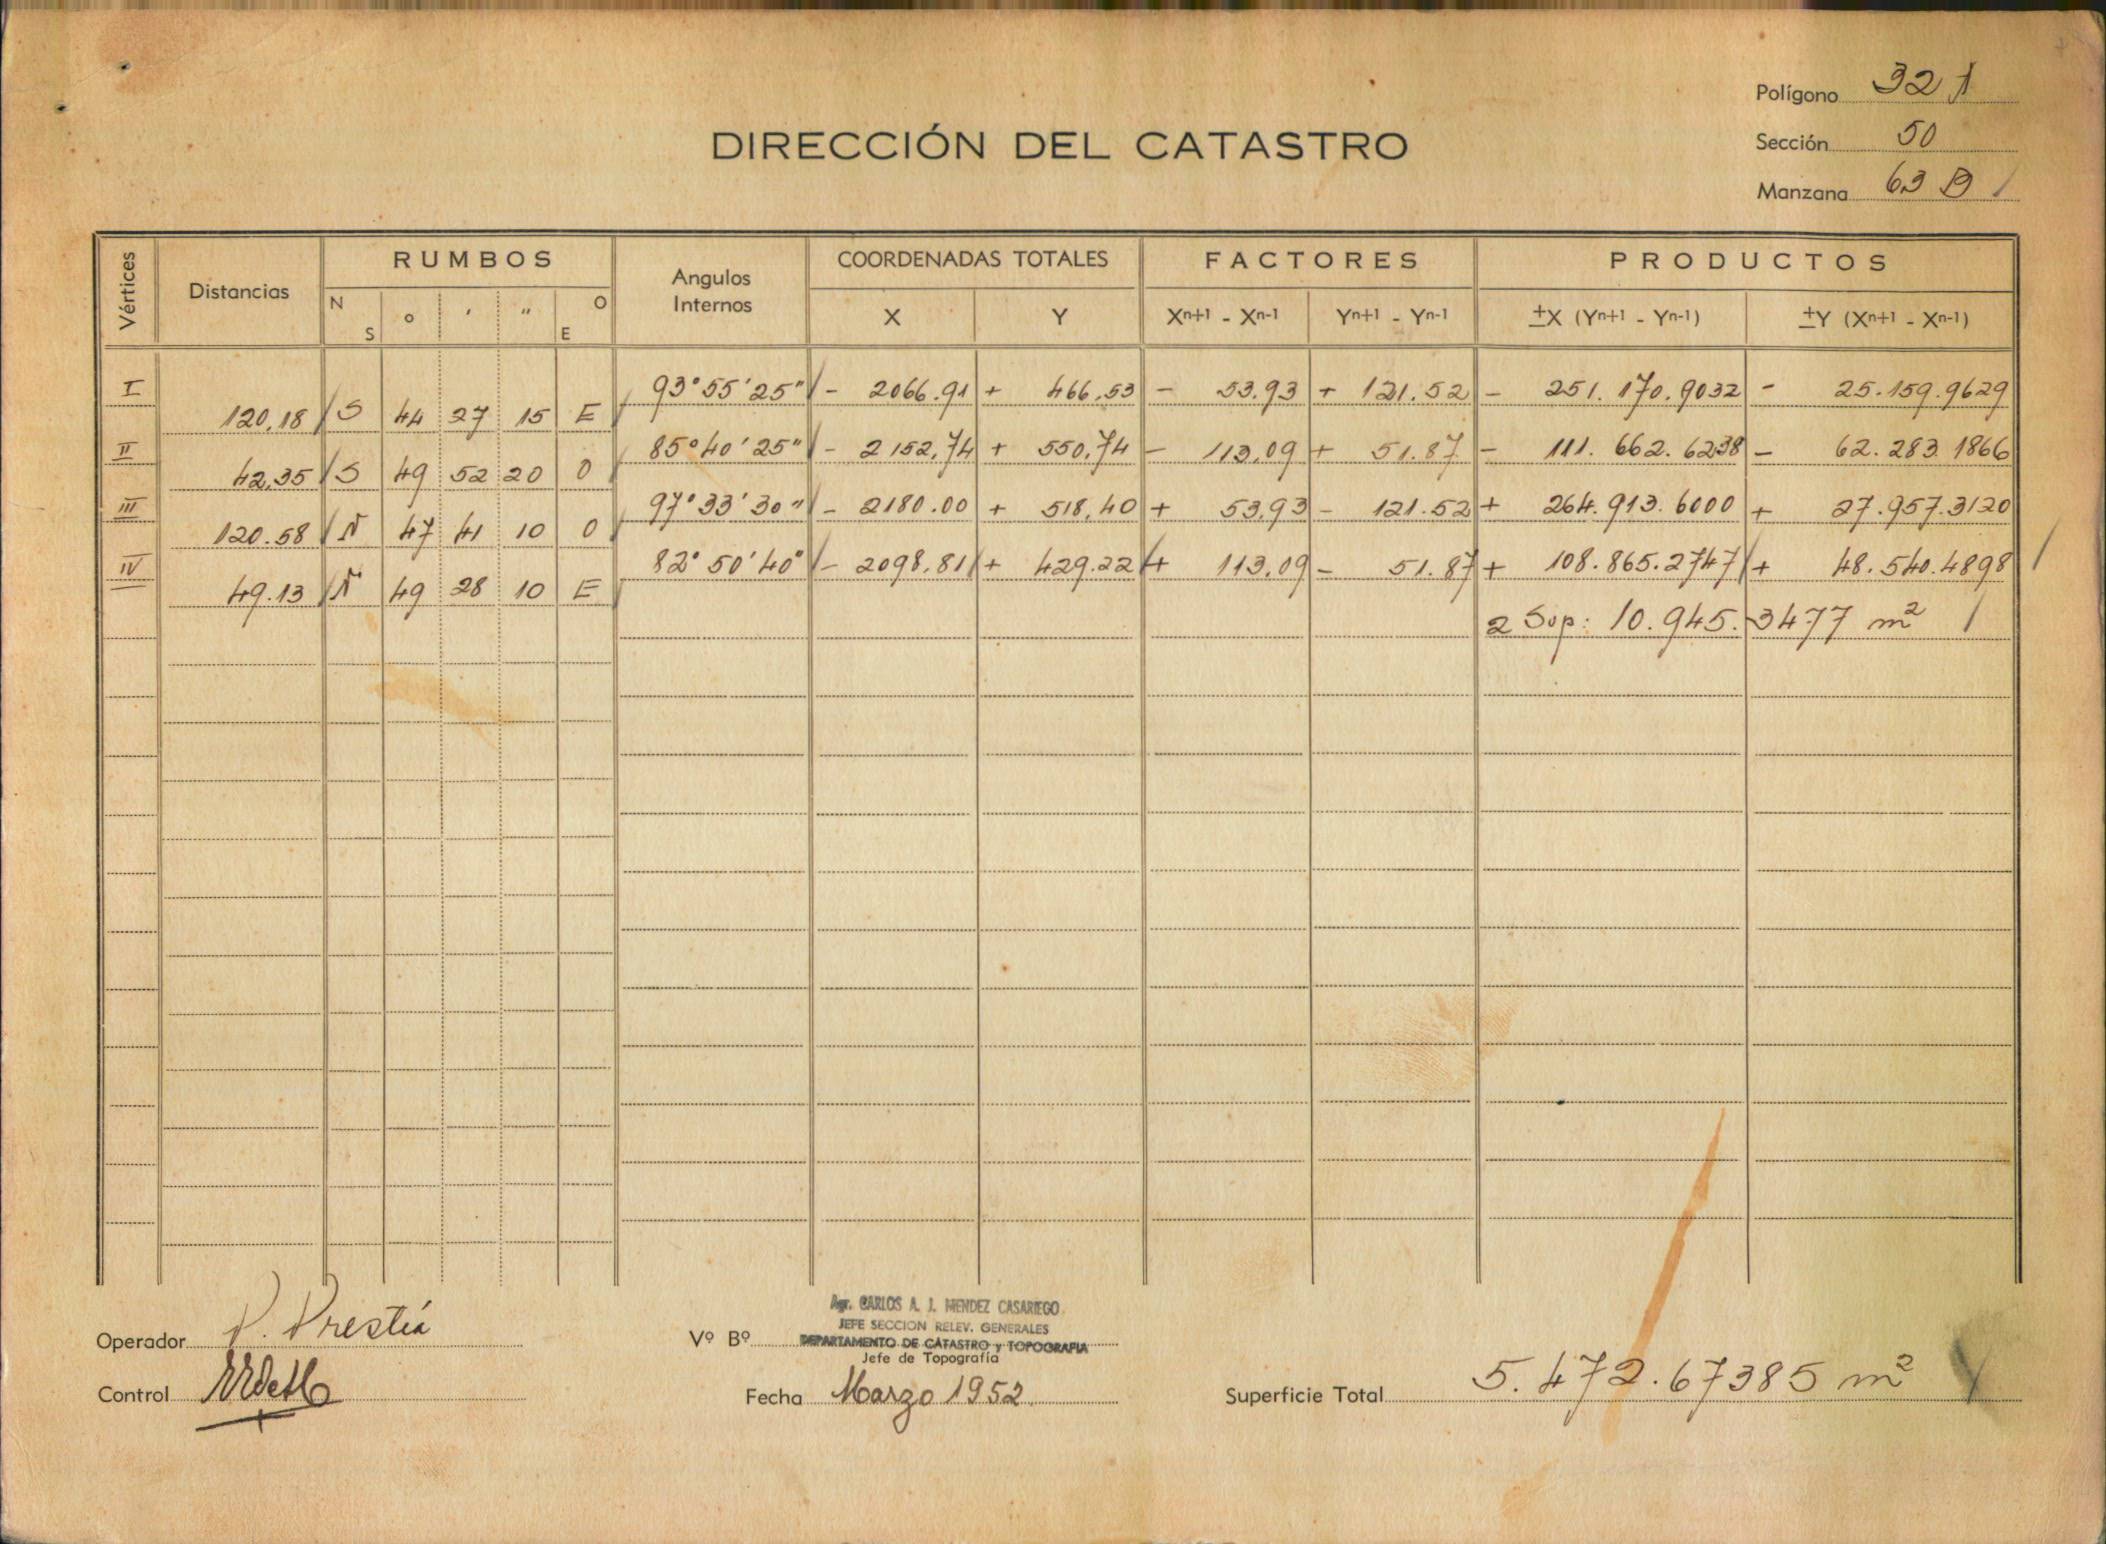 Polígono 32 A
DIRECCIÓN DEL CATASTRO
Sección 50
Manzana 63 B
Vértices Distancias RUMBOS Angulos Internos COORDENADAS TOTALES FACTORES PRODUCTOS
N S ° ' " O E X Y Xn+1 - Xn-1 Yn+1 - Yn-1 ±X (Yn+1 - Yn-1) ±Y (Xn+1 - Xn-1)
I 93°55'25" - 2066.91 + 466.53 - 53.93 + 121.52 - 251.170.9032 - 25.159.9629
120.18 S 44 27 15 E
II 85°40'25" - 2152.74 + 550.74 - 113.09 + 51.87 - 111.662.6238 - 62.283.1866
42.35 S 49 52 20 O
III 97°33'30" - 2180.00 + 518.40 + 53.93 - 121.52 + 264.913.6000 + 27.957.3120
120.58 N 47 41 10 O
IV 82°50'40" - 2098.81 + 429.22 + 113.09 - 51.87 + 108.865.2747 + 48.540.4898
49.13 N 49 28 10 E
2 Sup: 10.945.3477 m²
Agr. CARLOS A. J. MENDEZ CASARIEGO
JEFE SECCION RELEV. GENERALES
Operador P. Prestía Vº Bº DEPARTAMENTO DE CATASTRO y TOPOGRAFIA
Jefe de Topografía
Control Fecha Marzo 1952 Superficie Total 5.472.67385 m²